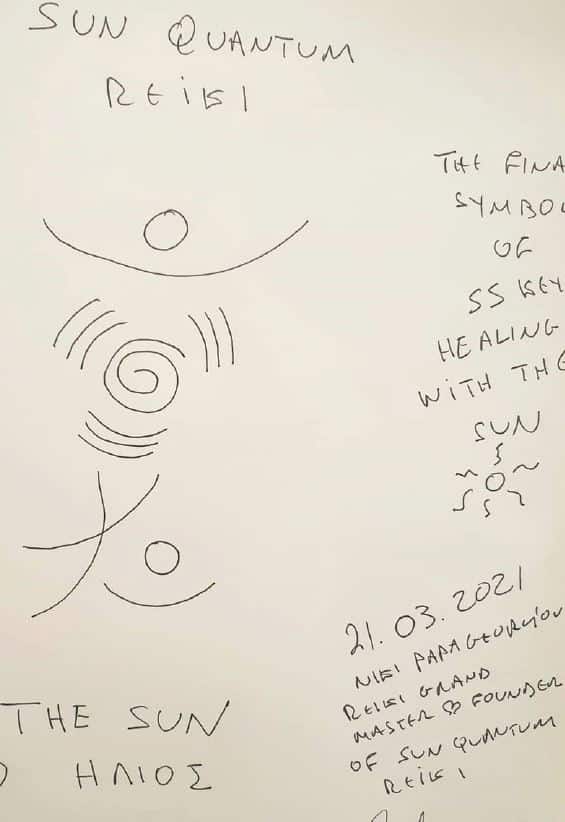 SUN QUANTUM
REIKI
THE FINA
SYMBO
OF
SS KEY
HEALING
WITH THE
SUN
21.03.2021
NIKI PAPAGEORGIOU
REIKI GRAND
MASTER FOUNDER
OF SUN QUANTUM
REIKI
THE SUN
ΗΛΙΟΣ